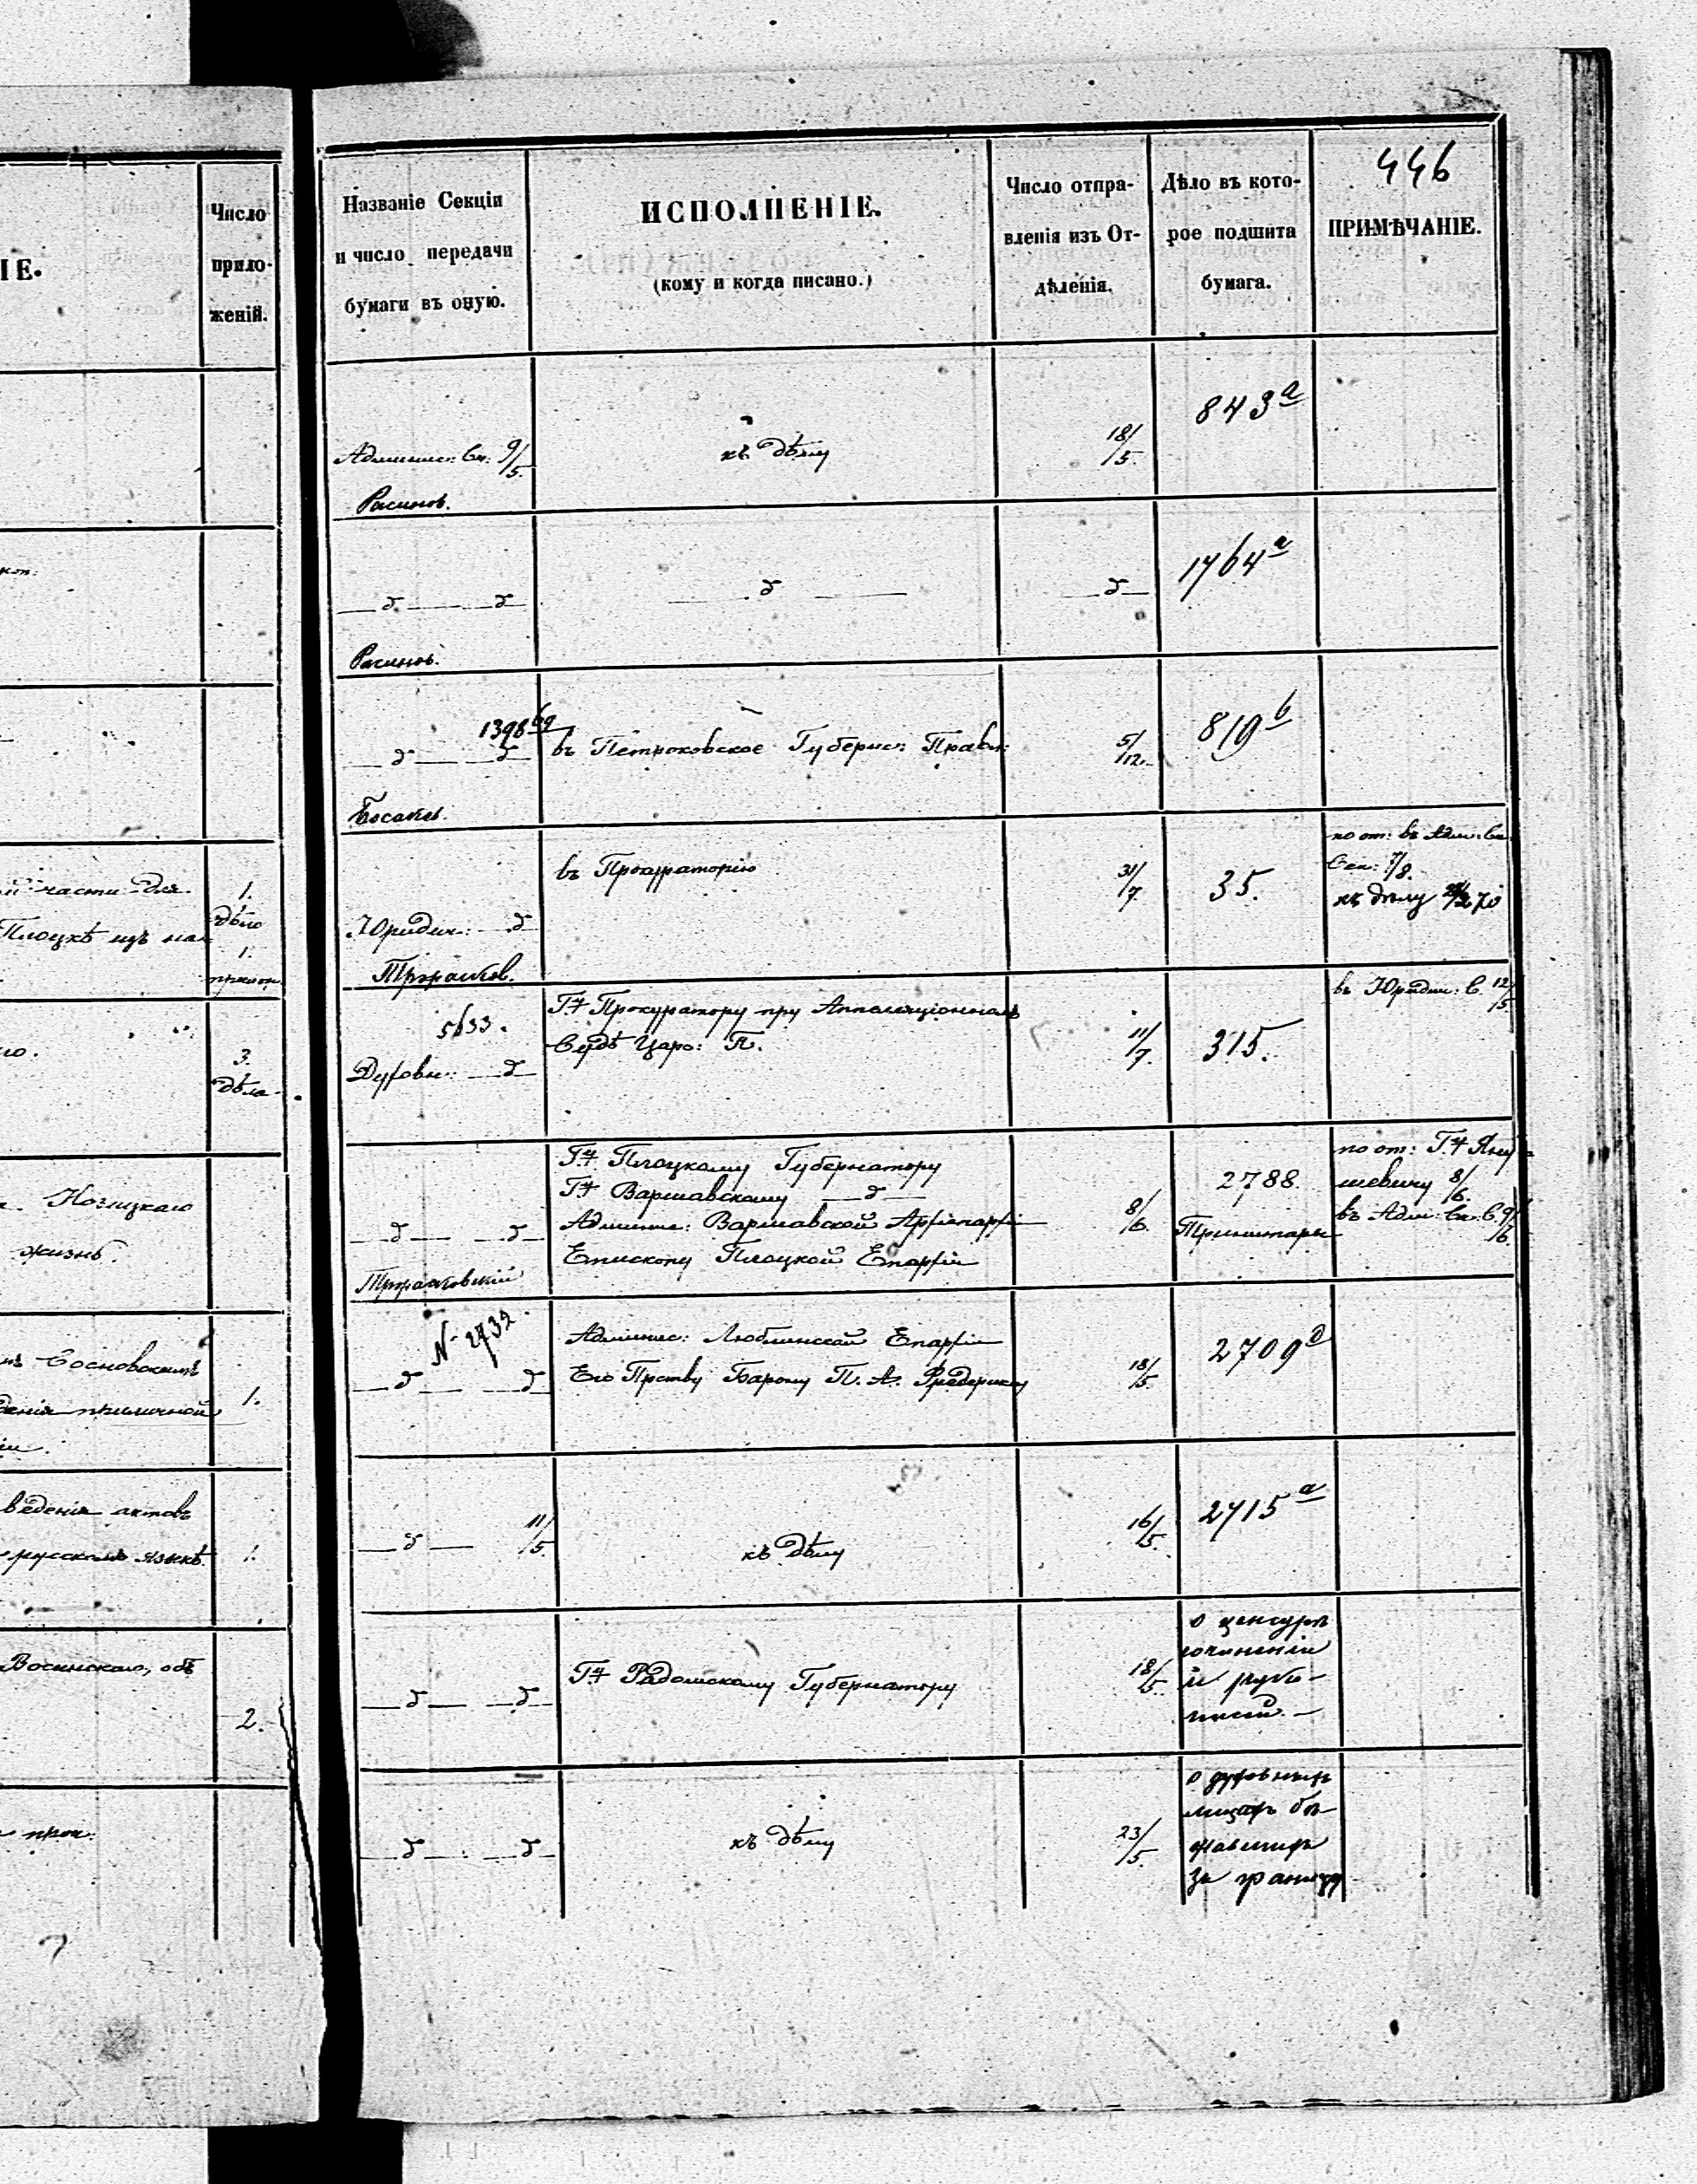 ІЕ.
Число
прило-
женій.
й части для
1.
дѣло
Плоцкѣ изъ на-
1.
прилож.
го.
3.
дѣла
Нозицкаго
жизнь.
Сосновскимъ
1.
денія приличной
іи.
веденія актовъ
русскомъ языкѣ.
1.
Восинскаго, объ
2.
446
Названіе Секціи
и число передачи
бумаги въ оную.
ИСПОЛНЕНІЕ.
(кому и когда писано.)
Число отпра-
вленія изъ От-
дѣленія.
Дѣло въ кото-
рое подшита
бумага.
ПРИМѢЧАНІЕ.
Админис: Ск: 9/5
Расинов.
къ дѣлу
18/5.
843 а
д д
Расинов.
д
д
1764 а
1398 69
д д
въ Петроковское Губернс: Правл:
5/12.
819 b
Юридич: д
въ Прокураторію
31/7.
35.
по от: въ Адм: Ск.
Сек: 7/8.
къ дѣлу
5633.
Духовн: д
Г-ну Прокуратору при Аппеляціонномъ
Судѣ Царс: П.
11/7.
315.
въ Юридич: С. 12/5
д д
Г-ну Плоцкому Губернатору
Г-ну Варшавскому д
Админис: Варшавской Архіепархіи
Епископу Плоцкой Епархіи
8/6.
2788.
по от: Г-ну Яну-
шевичу 8/6.
въ Адм: Ск: С. 9/6.
N 2732.
д д
Админис: Люблинской Епархіи
Его Прству Барону П. А. Фредериксу
18/5.
2709 д
д 11/5.
къ дѣлу
16/5.
2715 а
д д
Г-ну Радомскому Губернатору
18/5.
о цензурѣ
сочиненій
и руко-
писей.
д д
къ дѣлу
23/5.
о духовныхъ
лицахъ бѣ-
жавшихъ
за границу